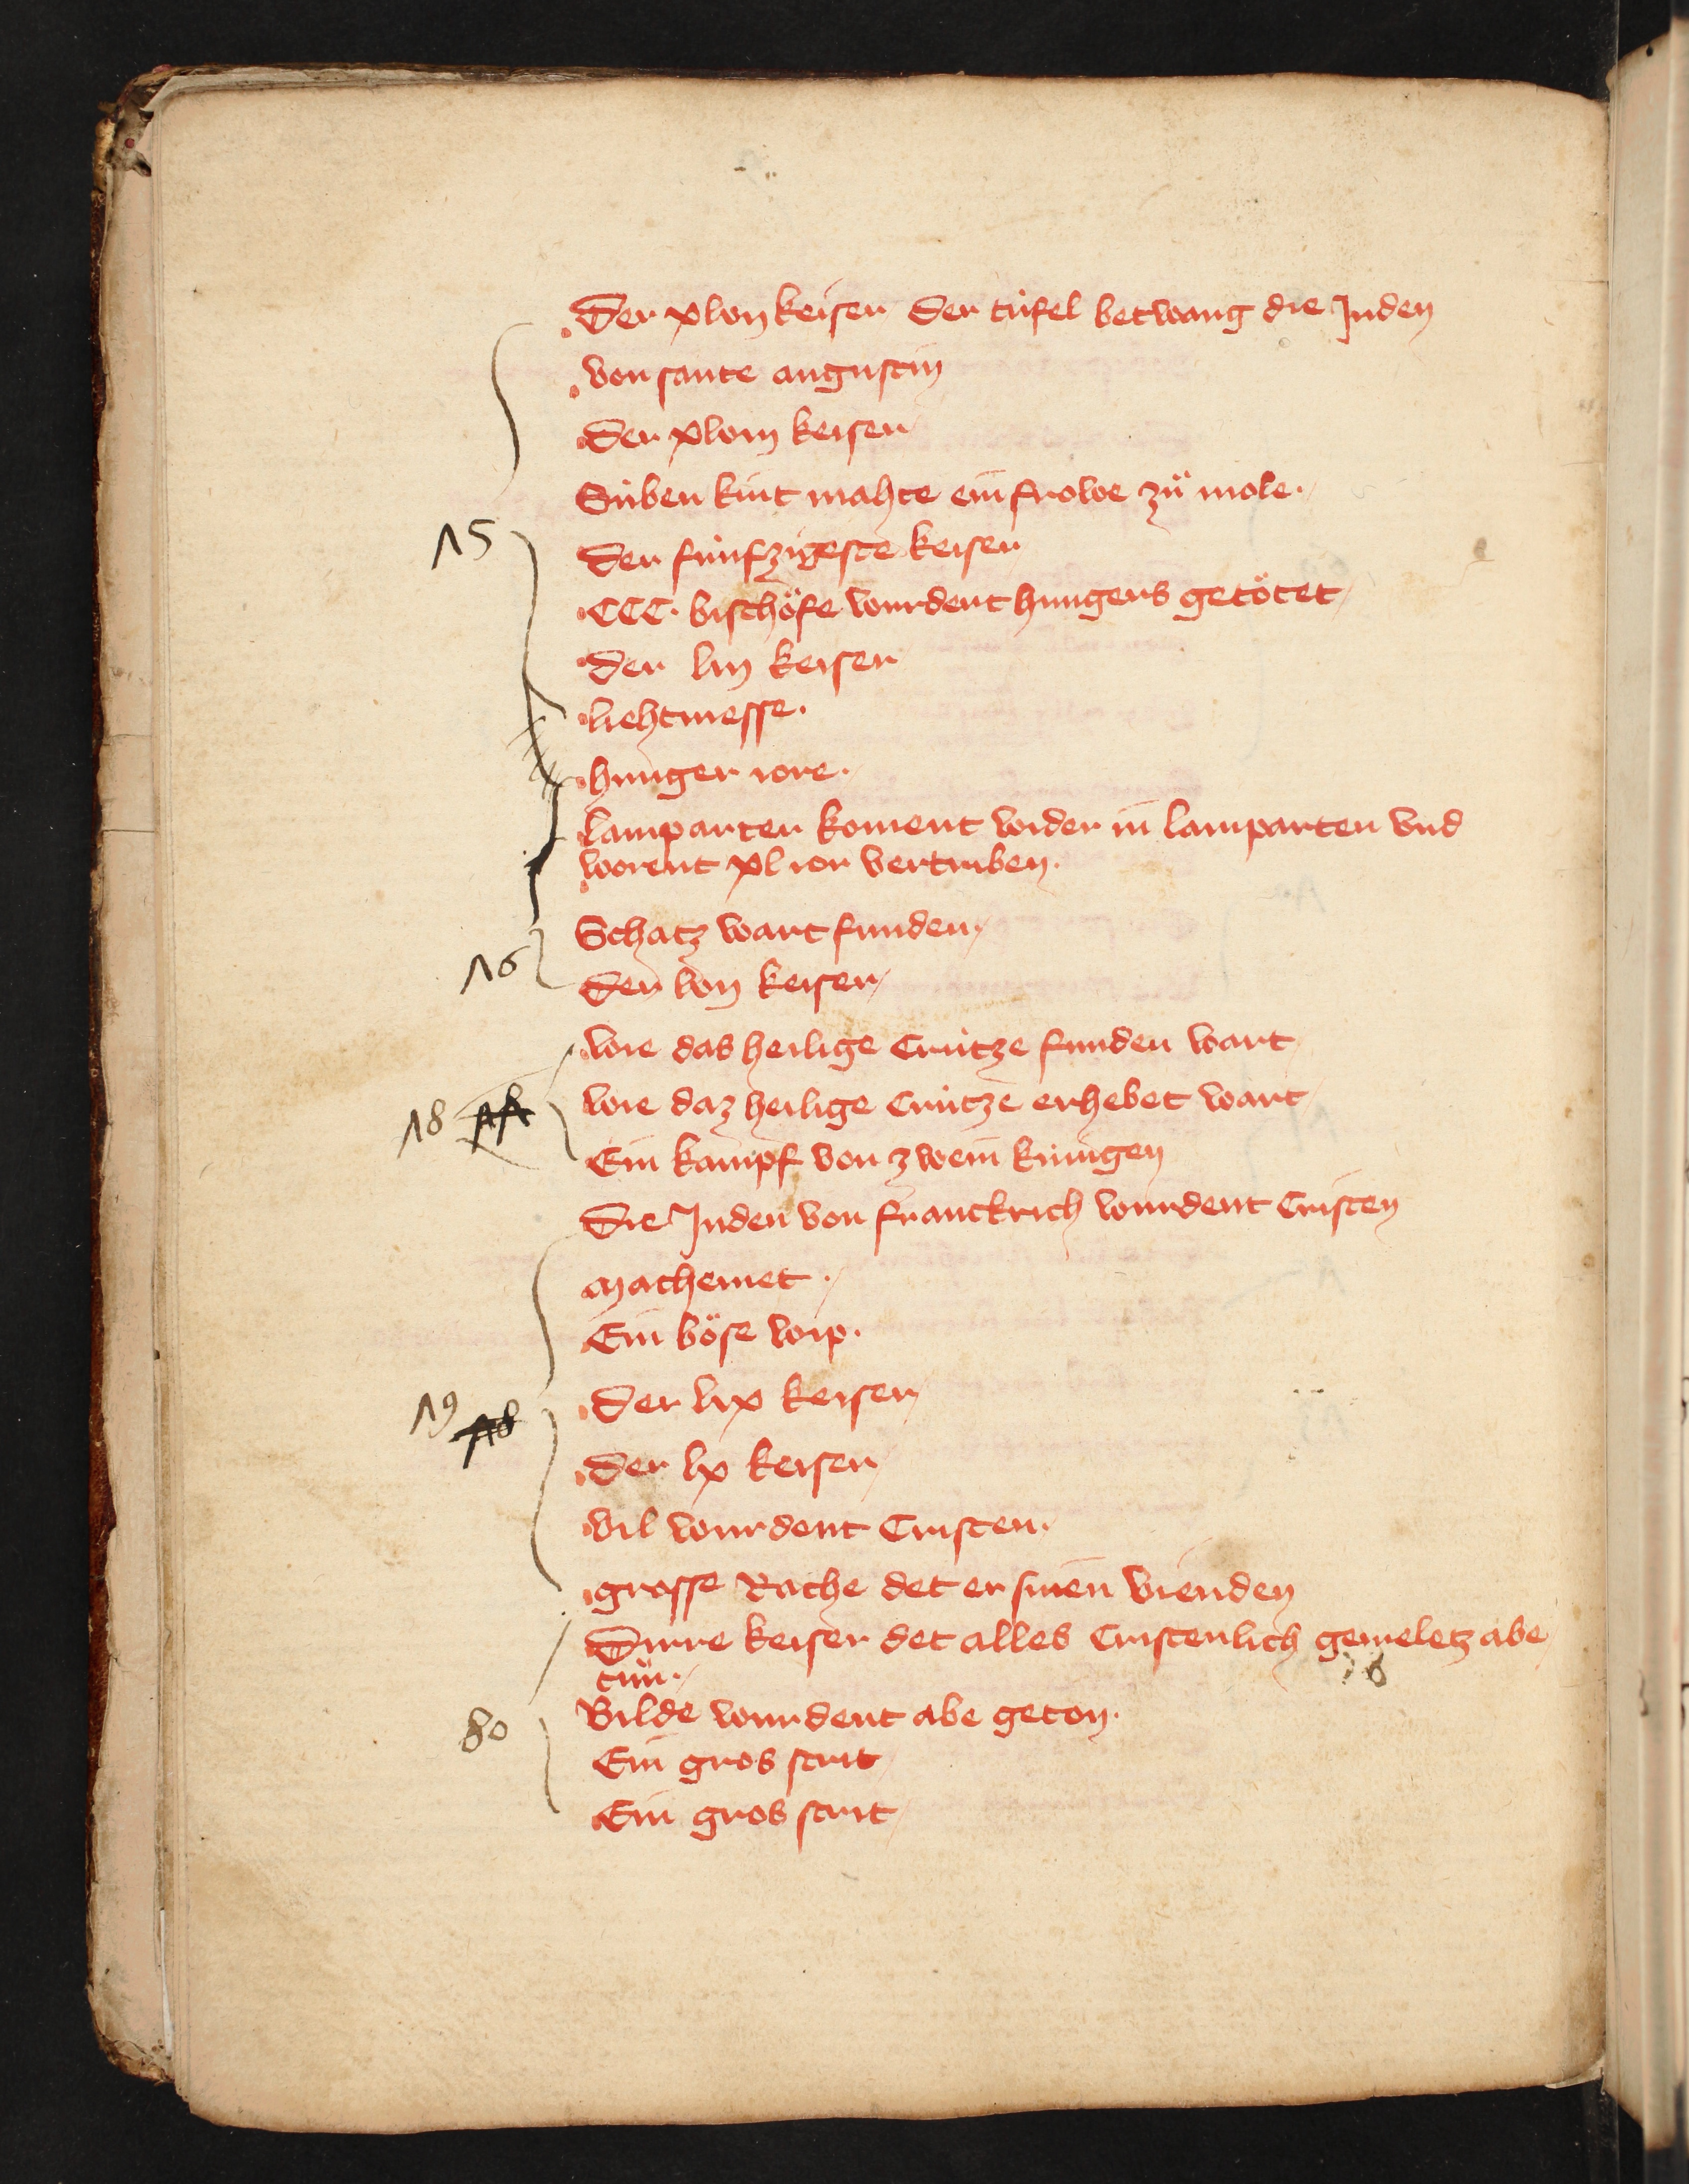 Der xlvij keiser Der túfel betwang die Juden
von sante augustin
Der xlviij keiser
Súben kint mahte ein frowe zů mole.
Der fúnfzigeste keiser
CCC. bischöfe wurdent hungers getötet
der liij keiser
liehtmesse.
hunger iore.
lamparter koment wider in lamparten vnd
worent xl ior vertriben.
Schatz wart funden
Der lvij keiser
wie das heilige Crútze funden wart
wie daz heilige Crútze erhebet wart
15
16
18
Ein kampf von zwein kúnigen
Die Juden von franckrich wurdent Cristen
machemet.
Ein böse wip.
der lix keiser
der lx keiser
19 18
vil wurdent Cristen.
grosse Rache det er sinen vienden
Dirre keiser det alles Cristenlich gemeletz abe
tůn.
Bilde wurdent abe geton.
80
Ein gros strit
Ein gros strit